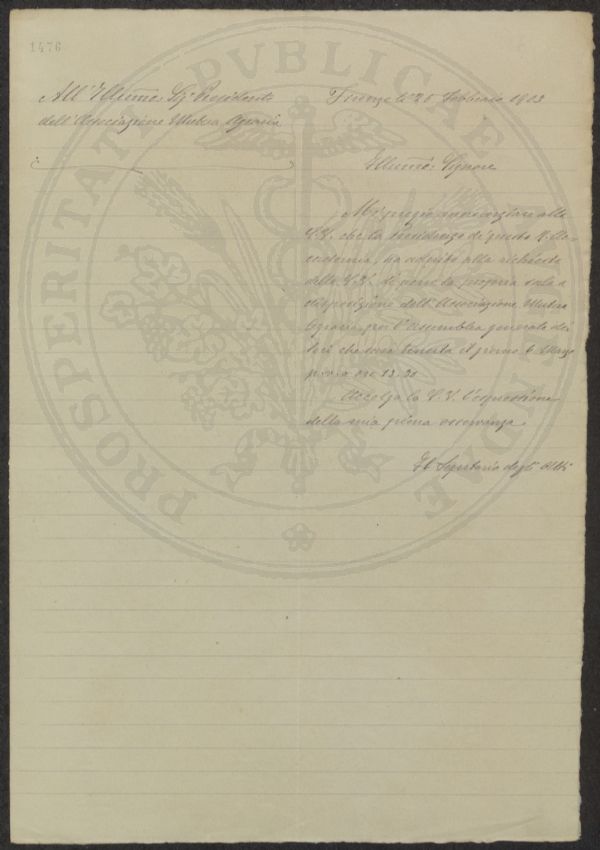 1476
All'Illmo Sigr Presidente
dell'Associazione Mutua Agraria
Firenze li 25 Febbraio 1903
Illmo Signore
Mi pregio annunziare alla
S.V. che la Presidenza di questa R. Ac-
cademia, ha aderito alla richiesta
della S.V. di porre la propria sala a
disposizione dell'Associazione Mutua
Agraria, per l'Assemblea generale dei
Soci che sarà tenuta il giorno 6 Marzo
p. ore 13.
Accolga la S.V. l'espressione
della mia piena osservanza.
Il Segretario degli Atti
PROSPERITATI PVBLICAE AUGENDAE